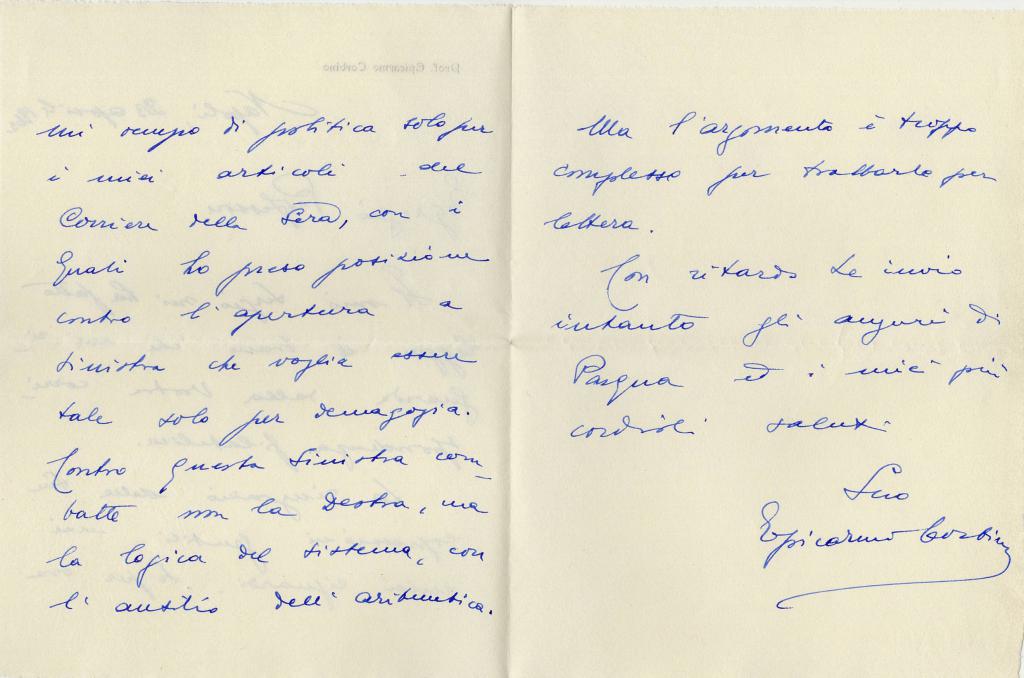 Prof. Epicarmo Corbino
mi occupo di politica solo per
i miei articoli del
Corriere della Sera, con i
quali ho preso posizione
contro l'apertura a
sinistra che voglia essere
tale solo per demagogia.
Contro questa sinistra com-
batte non la Destra, ma
la logica del sistema, con
l'ausilio dell'aritmetica.
Ma l'argomento è troppo
complesso per trattarlo per
lettera.
Con ritardo Le invio
intanto gli auguri di
Pasqua ed i miei più
cordiali saluti
Suo
Epicarmo Corbino